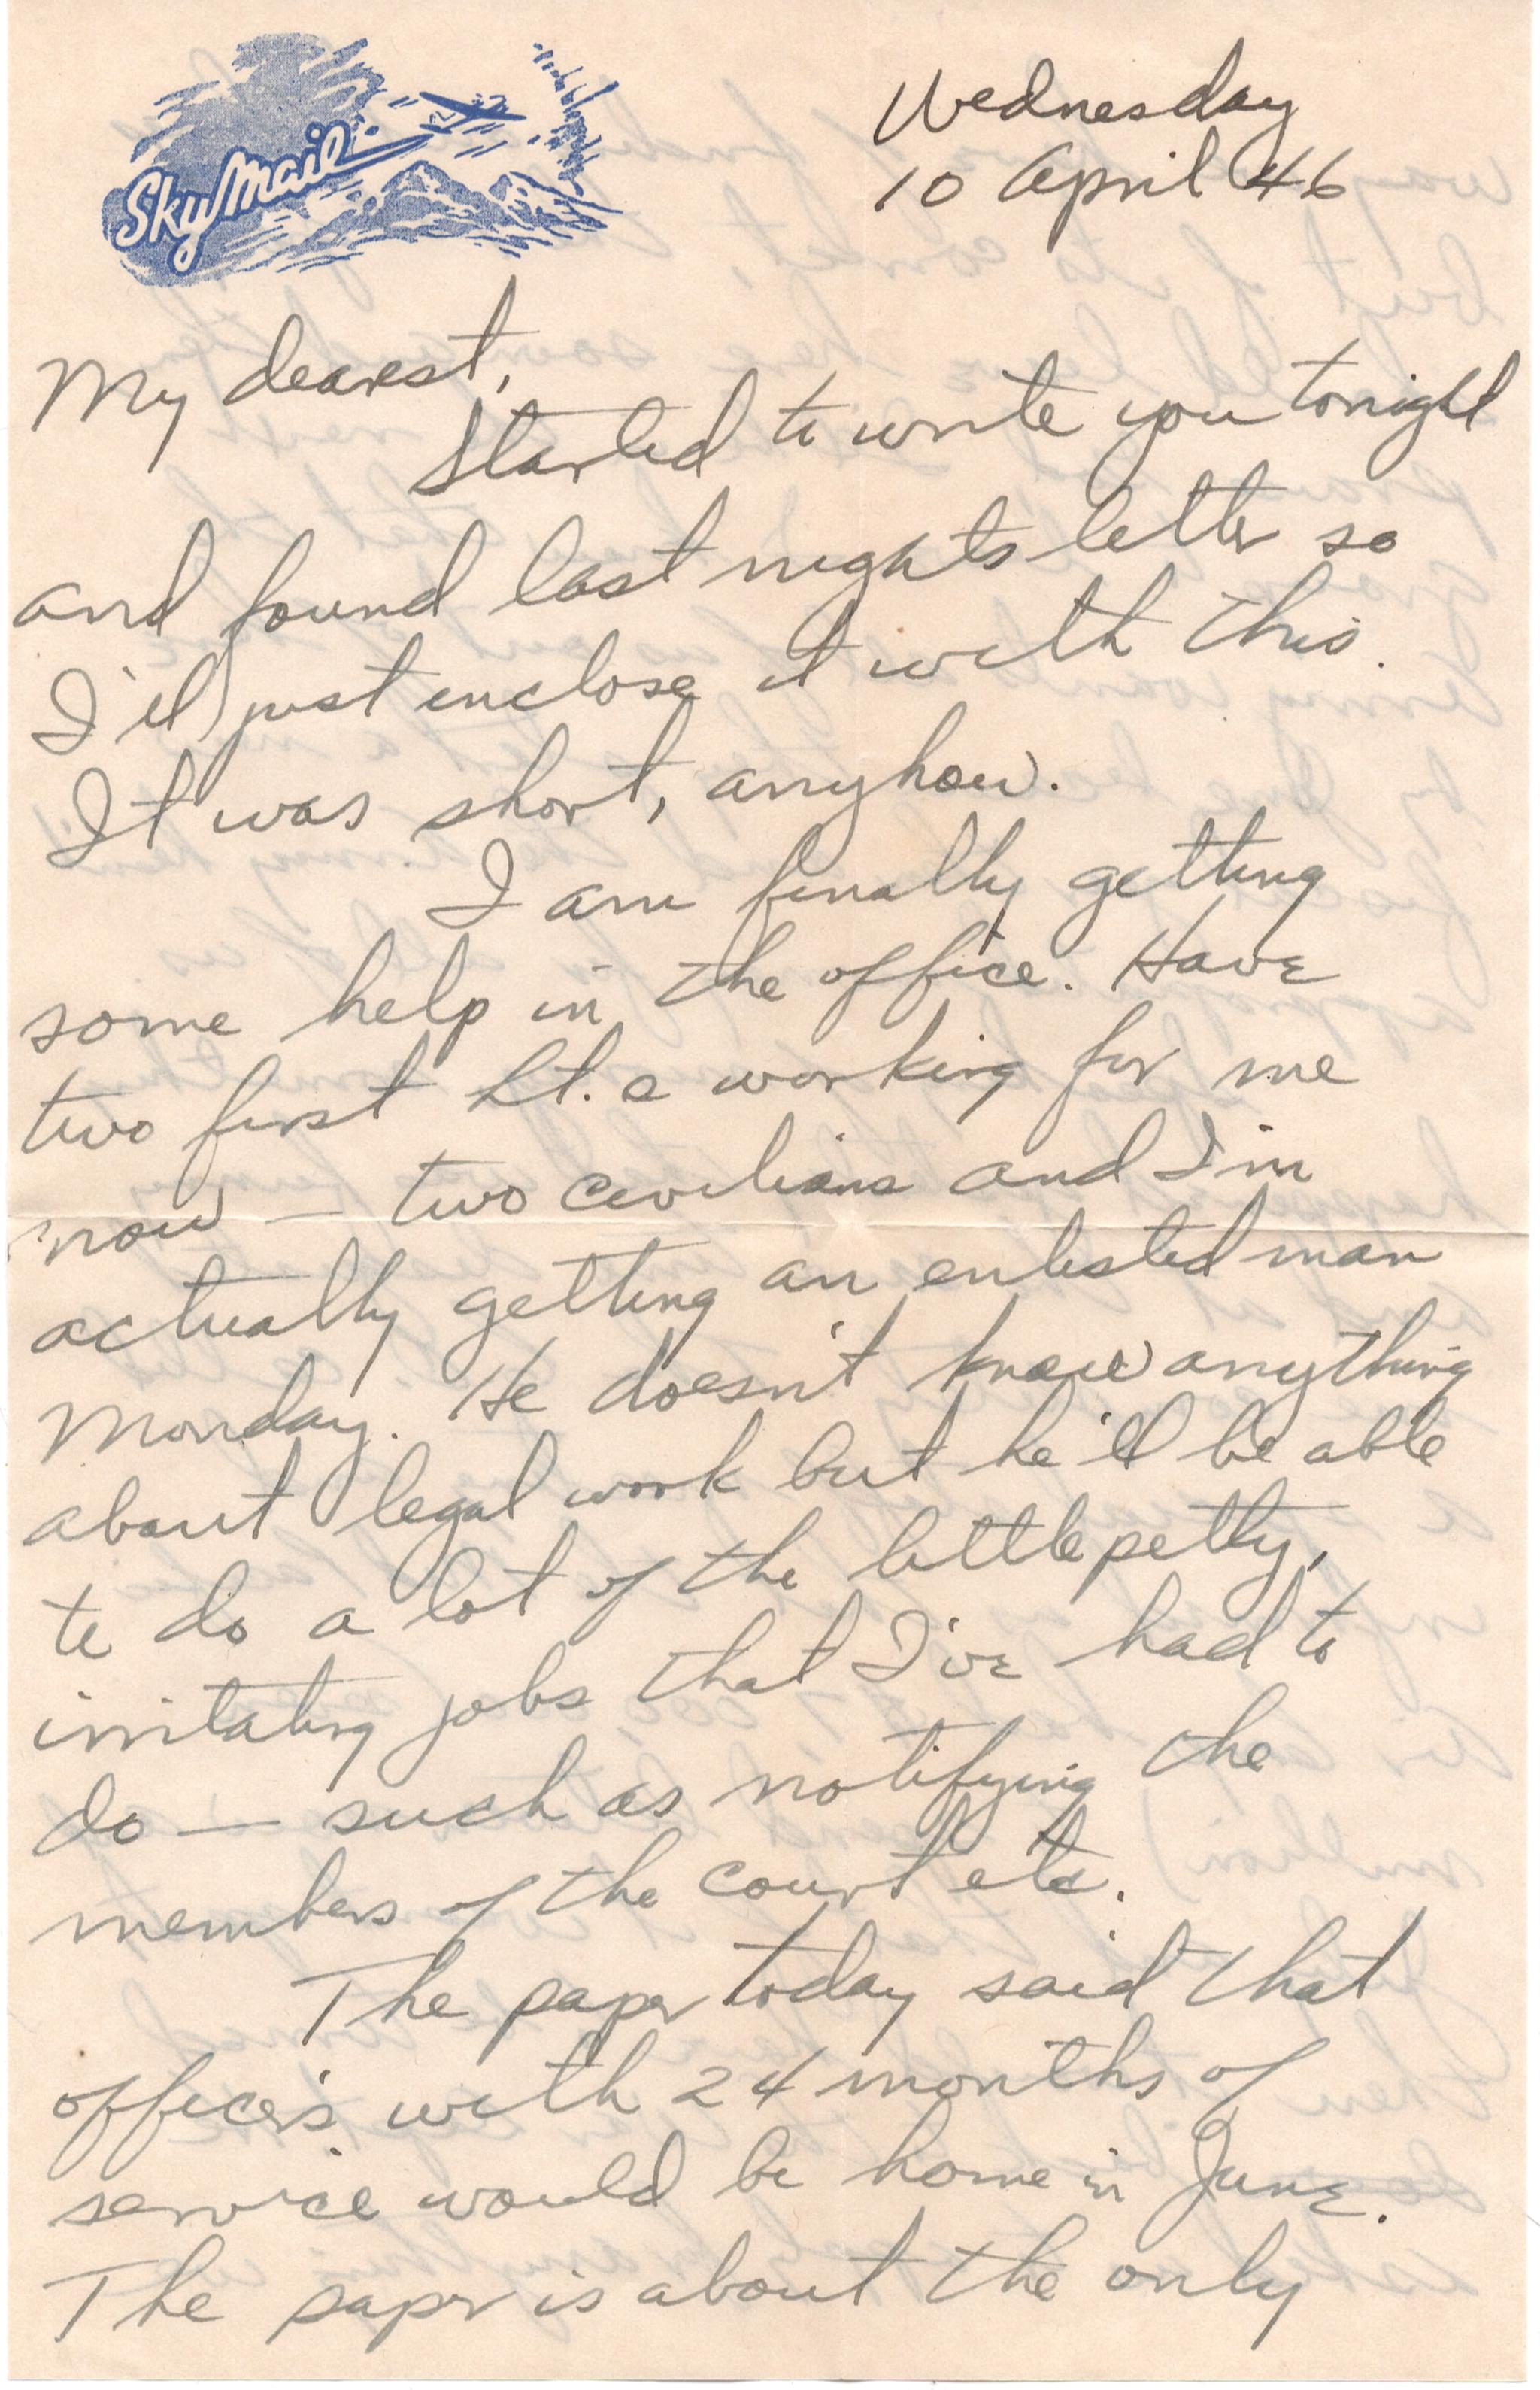 Sky Mail
Wednesday
10 April 46
My dearest,
Started to write you tonight
and found last nights letter so
I'll just enclose it with this.
It was short, anyhow.
I am finally getting
some help in the office. Have
two first Lt.s working for me
now — two civilians and I'm
actually getting an enlisted man
Monday. He doesn't know anything
about legal work but he'll be able
to do a lot of the little petty,
irritating jobs that I've had to
do — such as notifying the
members of the court etc.
The paper today said that
officers with 24 months of
service would be home in June.
The paper is about the only